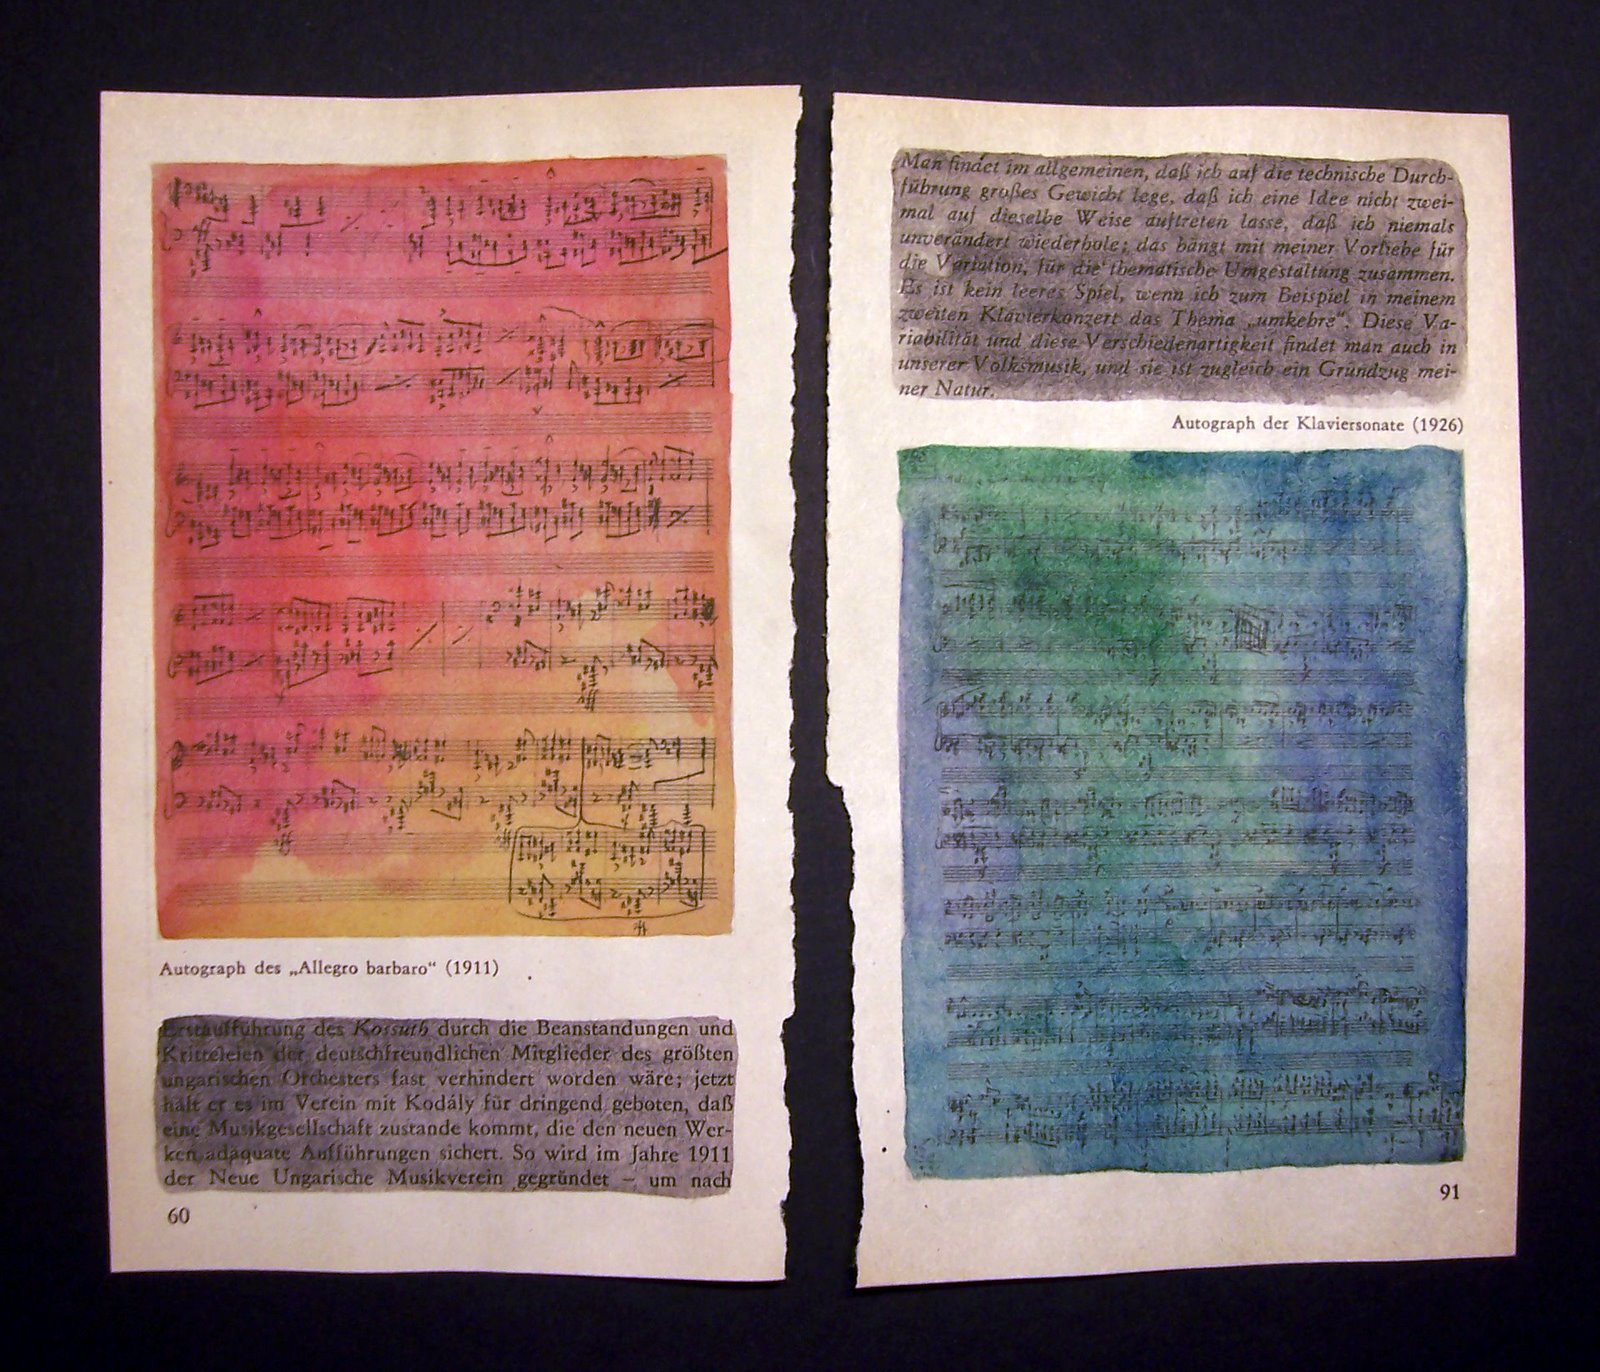 Autograph des „Allegro barbaro“ (1911)
Erstaufführung des Kossuth durch die Beanstandungen und
Kritteleien der deutschfreundlichen Mitglieder des größten
ungarischen Orchesters fast verhindert worden wäre; jetzt
hält er es im Verein mit Kodály für dringend geboten, daß
eine Musikgesellschaft zustande kommt, die den neuen Wer-
ken adäquate Aufführungen sichert. So wird im Jahre 1911
der Neue Ungarische Musikverein gegründet – um nach
60
Man findet im allgemeinen, daß ich auf die technische Durch-
führung großes Gewicht lege, daß ich eine Idee nicht zwei-
mal auf dieselbe Weise auftreten lasse, daß ich niemals
unverändert wiederhole; das hängt mit meiner Vorliebe für
die Variation, für die thematische Umgestaltung zusammen.
Es ist kein leeres Spiel, wenn ich zum Beispiel in meinem
zweiten Klavierkonzert das Thema „umkehre“. Diese Va-
riabilität und diese Verschiedenartigkeit findet man auch in
unserer Volksmusik, und sie ist zugleich ein Grundzug mei-
ner Natur.
Autograph der Klaviersonate (1926)
91